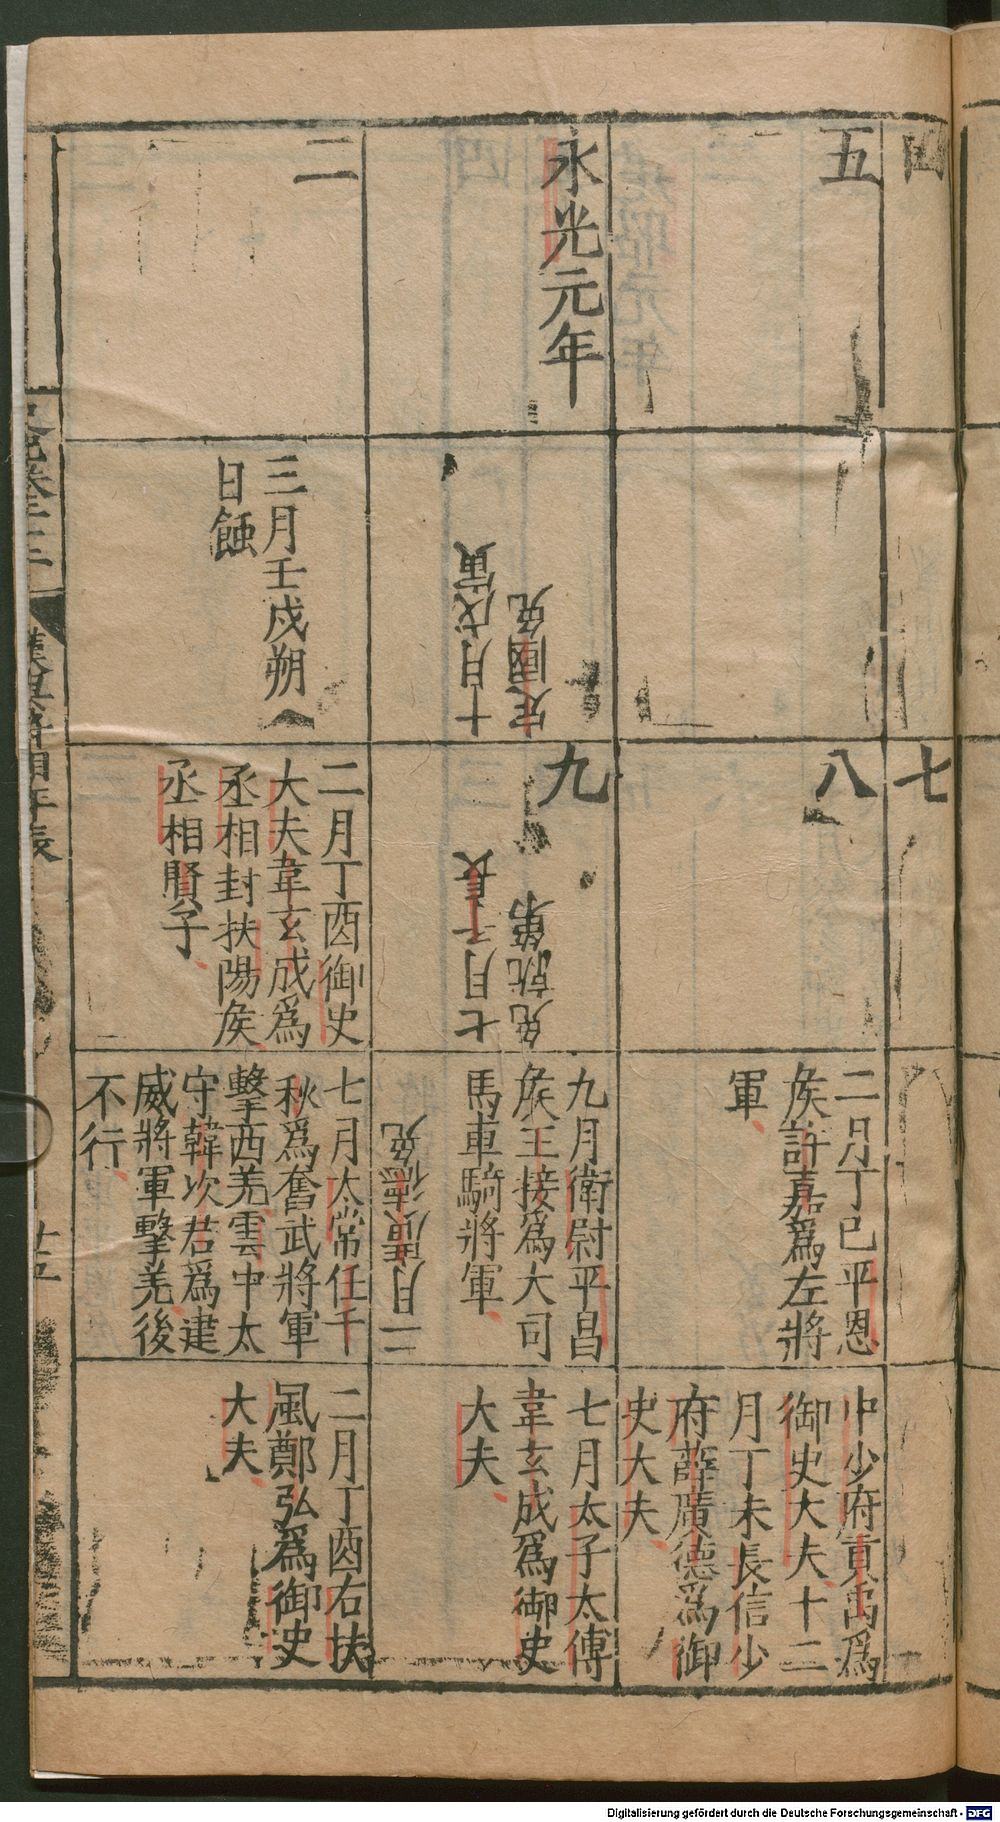 四
七
五
八
二月丁巳平恩
矦許嘉爲左將
軍
中少府貢禹爲
御史大夫十二
月丁未長信少
府薛廣德爲御
史大夫
永光元年
十月戊寅
定國免
九
七月子長
免就第
九月衛尉平昌
矦王接爲大司
馬車騎將軍
二月
免
七月太子太傅
韋玄成爲御史
大夫
二
三月壬戌朔
日蝕
二月丁酉御史
大夫韋玄成爲
丞相封扶陽矦
丞相賢子
七月太常任千
秋爲奮武將軍
擊西羌雲中太
守韓次君爲建
威將軍擊羌後
不行
二月丁酉右扶
風鄭弘爲御史
大夫
漢興將相年表
廿五
Digitalisierung gefördert durch die Deutsche Forschungsgemeinschaft - DFG